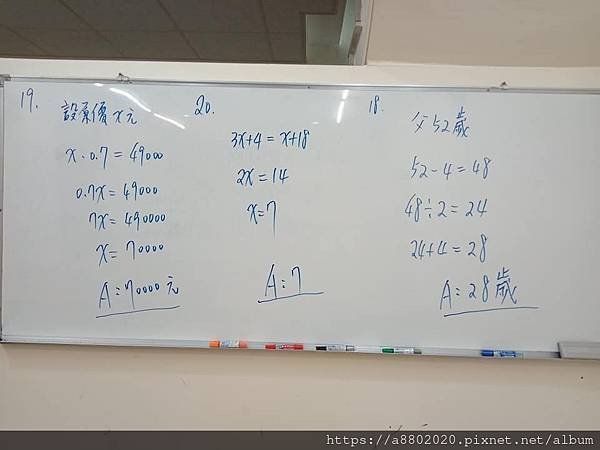 19.
設原價x元
x·0.7=49000
0.7x=49000
7x=490000
x=70000
A:70000元
20.
3x+4=x+18
2x=14
x=7
A:7
18.
父52歲
52-4=48
48÷2=24
24+4=28
A:28歲
https://a8802020.pixnet.net/album